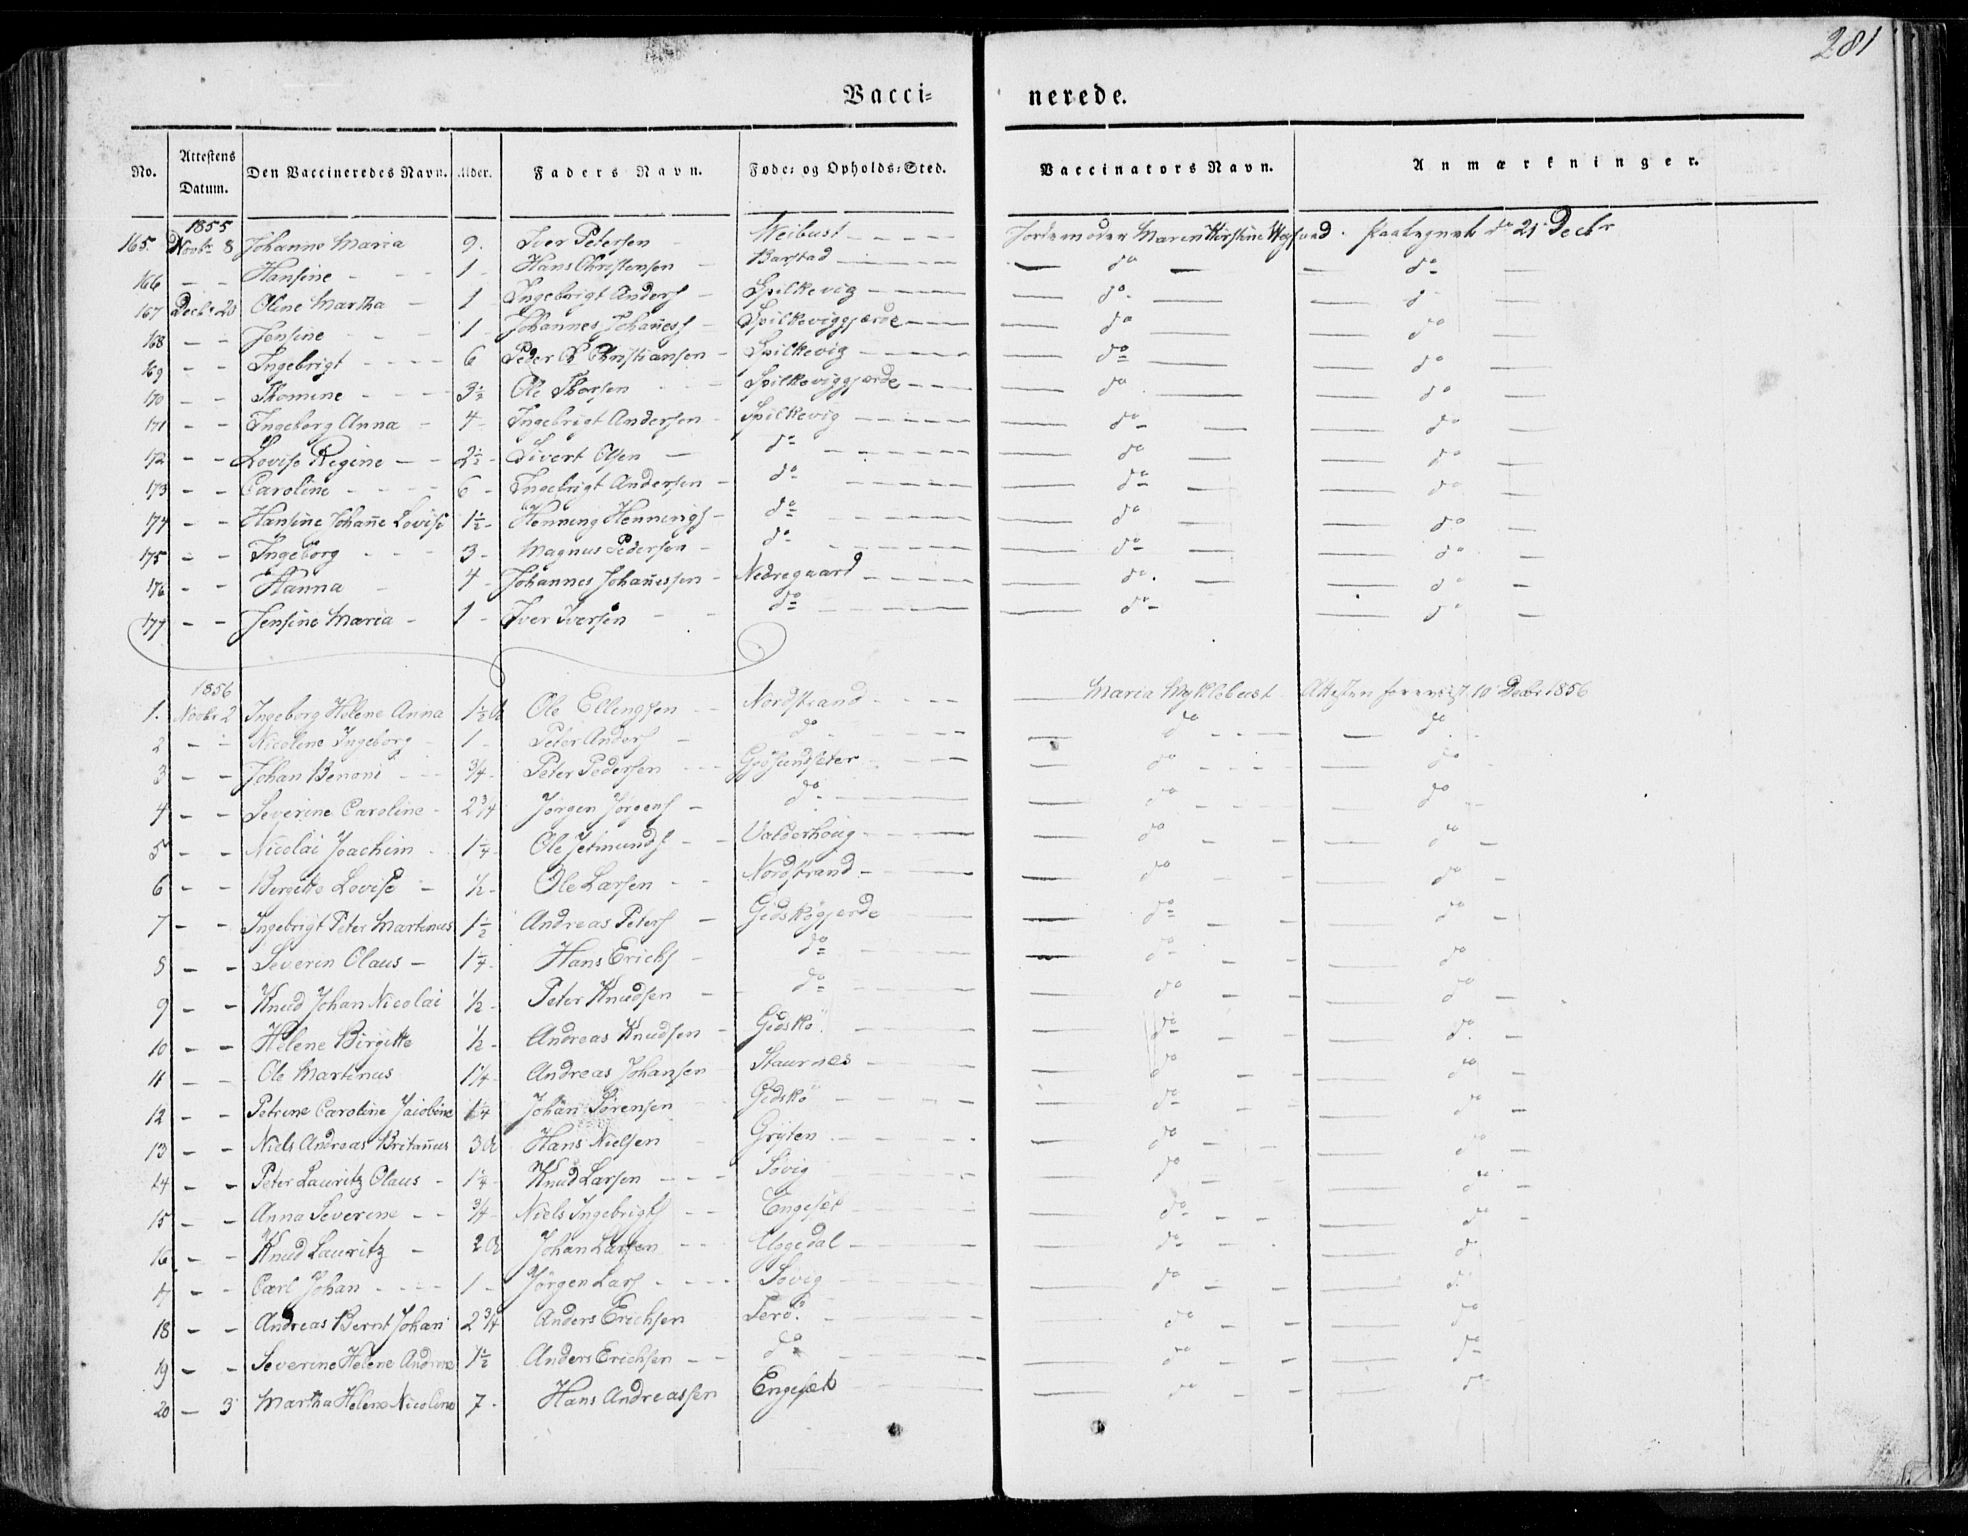 281
Vacci- nerede.
No. Attestens Datum. Den Vaccineredes Navn. Alder. Faders Navn. Føde- og Opholds-Sted. Vaccinators Navn. Anmærkninger.
1855
165. Novbr 8 Johanne Maria 9. Iver Petersen Weibust Jordemoder Maren Kirstine 21 Decbr
166 - - Hansine 1 Hans Christensen Barstad do do
167 Decbr 20 Oline Martha 1 Ingebrigt Anders Spilkevig do d
168 - - Jensine 1 Johannes Johañess Spilkeviggjærde do do
169 - - Ingebrigt 6 Peder Christiansen Spilkevig do do
170 - - Thomine 3½ Ole Thorsen Spilkeviggjærde do do
171 - - Ingeborg Anna 4 Ingebrigt Andersen Spilkevig do do
172 - - Lovise Regine 2½ Sivert Olsen do do do
173 - - Caroline 6 Ingebrigt Andersen do do do
174 - - Hansine Johañe Lovise 1½ Henning Hennings do do do
175 - - Ingeborg 3 Magnus Pedersen do do do
176 - - Hanna 4 Johannes Johañessen Nedregaard do. do
177 - - Jensine Maria 1 Iver Iversen do do do
1856
1. Novbr 2 Ingeborg Helene Anna 1½ A Ole Ellengsen Nordstrand Maria Myklebust Attesten forevist 10 Decbr 1856
2 - - Nicoline Ingeborg 1 Peter Anders do do do
3 - - Johan Benoni ¾ Peter Pedersen Gjøsundsæter do do
4 - - Severine Caroline 2¾ Jørgen Jørgens do do do
5 - - Nicolai Joachim 1¼ Ole Jetmunds Valderhoug do do
6 - - Birgitte Lovise ½ Ole Larsen Nordstrand do do
7 - - Ingebrigt Peter Martinus 1½ Andreas Peters Gidskøgjerde do do
8 - - Severin Olaus 1¼ Hans Erichs do do do
9 - - Knud Johan Nicolai ½ Peter Knudsen do do do
10 - - Helene Birgitte ½ Andreas Knudsen Gidskø do do
11 - - Ole Martinus 1¼ Andreas Johansen Staurnes do do
12 - - Petrine Caroline Jacobine 1¼ Johan Sørensen Gidskø do do
13 - - Niels Andreas Britañus 3 A Hans Nielsen Gryten do do
14 - - Peter Lauritz Olaus 1¼ Knud Larsen Søvig do do
15 - - Anna Severine ¾ Niels Ingebrigts Engeset do do
16 - - Knud Lauritz 2 A Johan Larsen Uggedal do do
17 - - Carl Johan 1 Jørgen Lars Søvig do do
18 - - Andreas Bernt Johan 2¾ Anders Erichsen Terø do do
19 - - Severine Helene Andrine 1½ Anders Erichsen do do do
20 - 3 Martha Helene Nicoline 7 Hans Andreassen Engeset do do